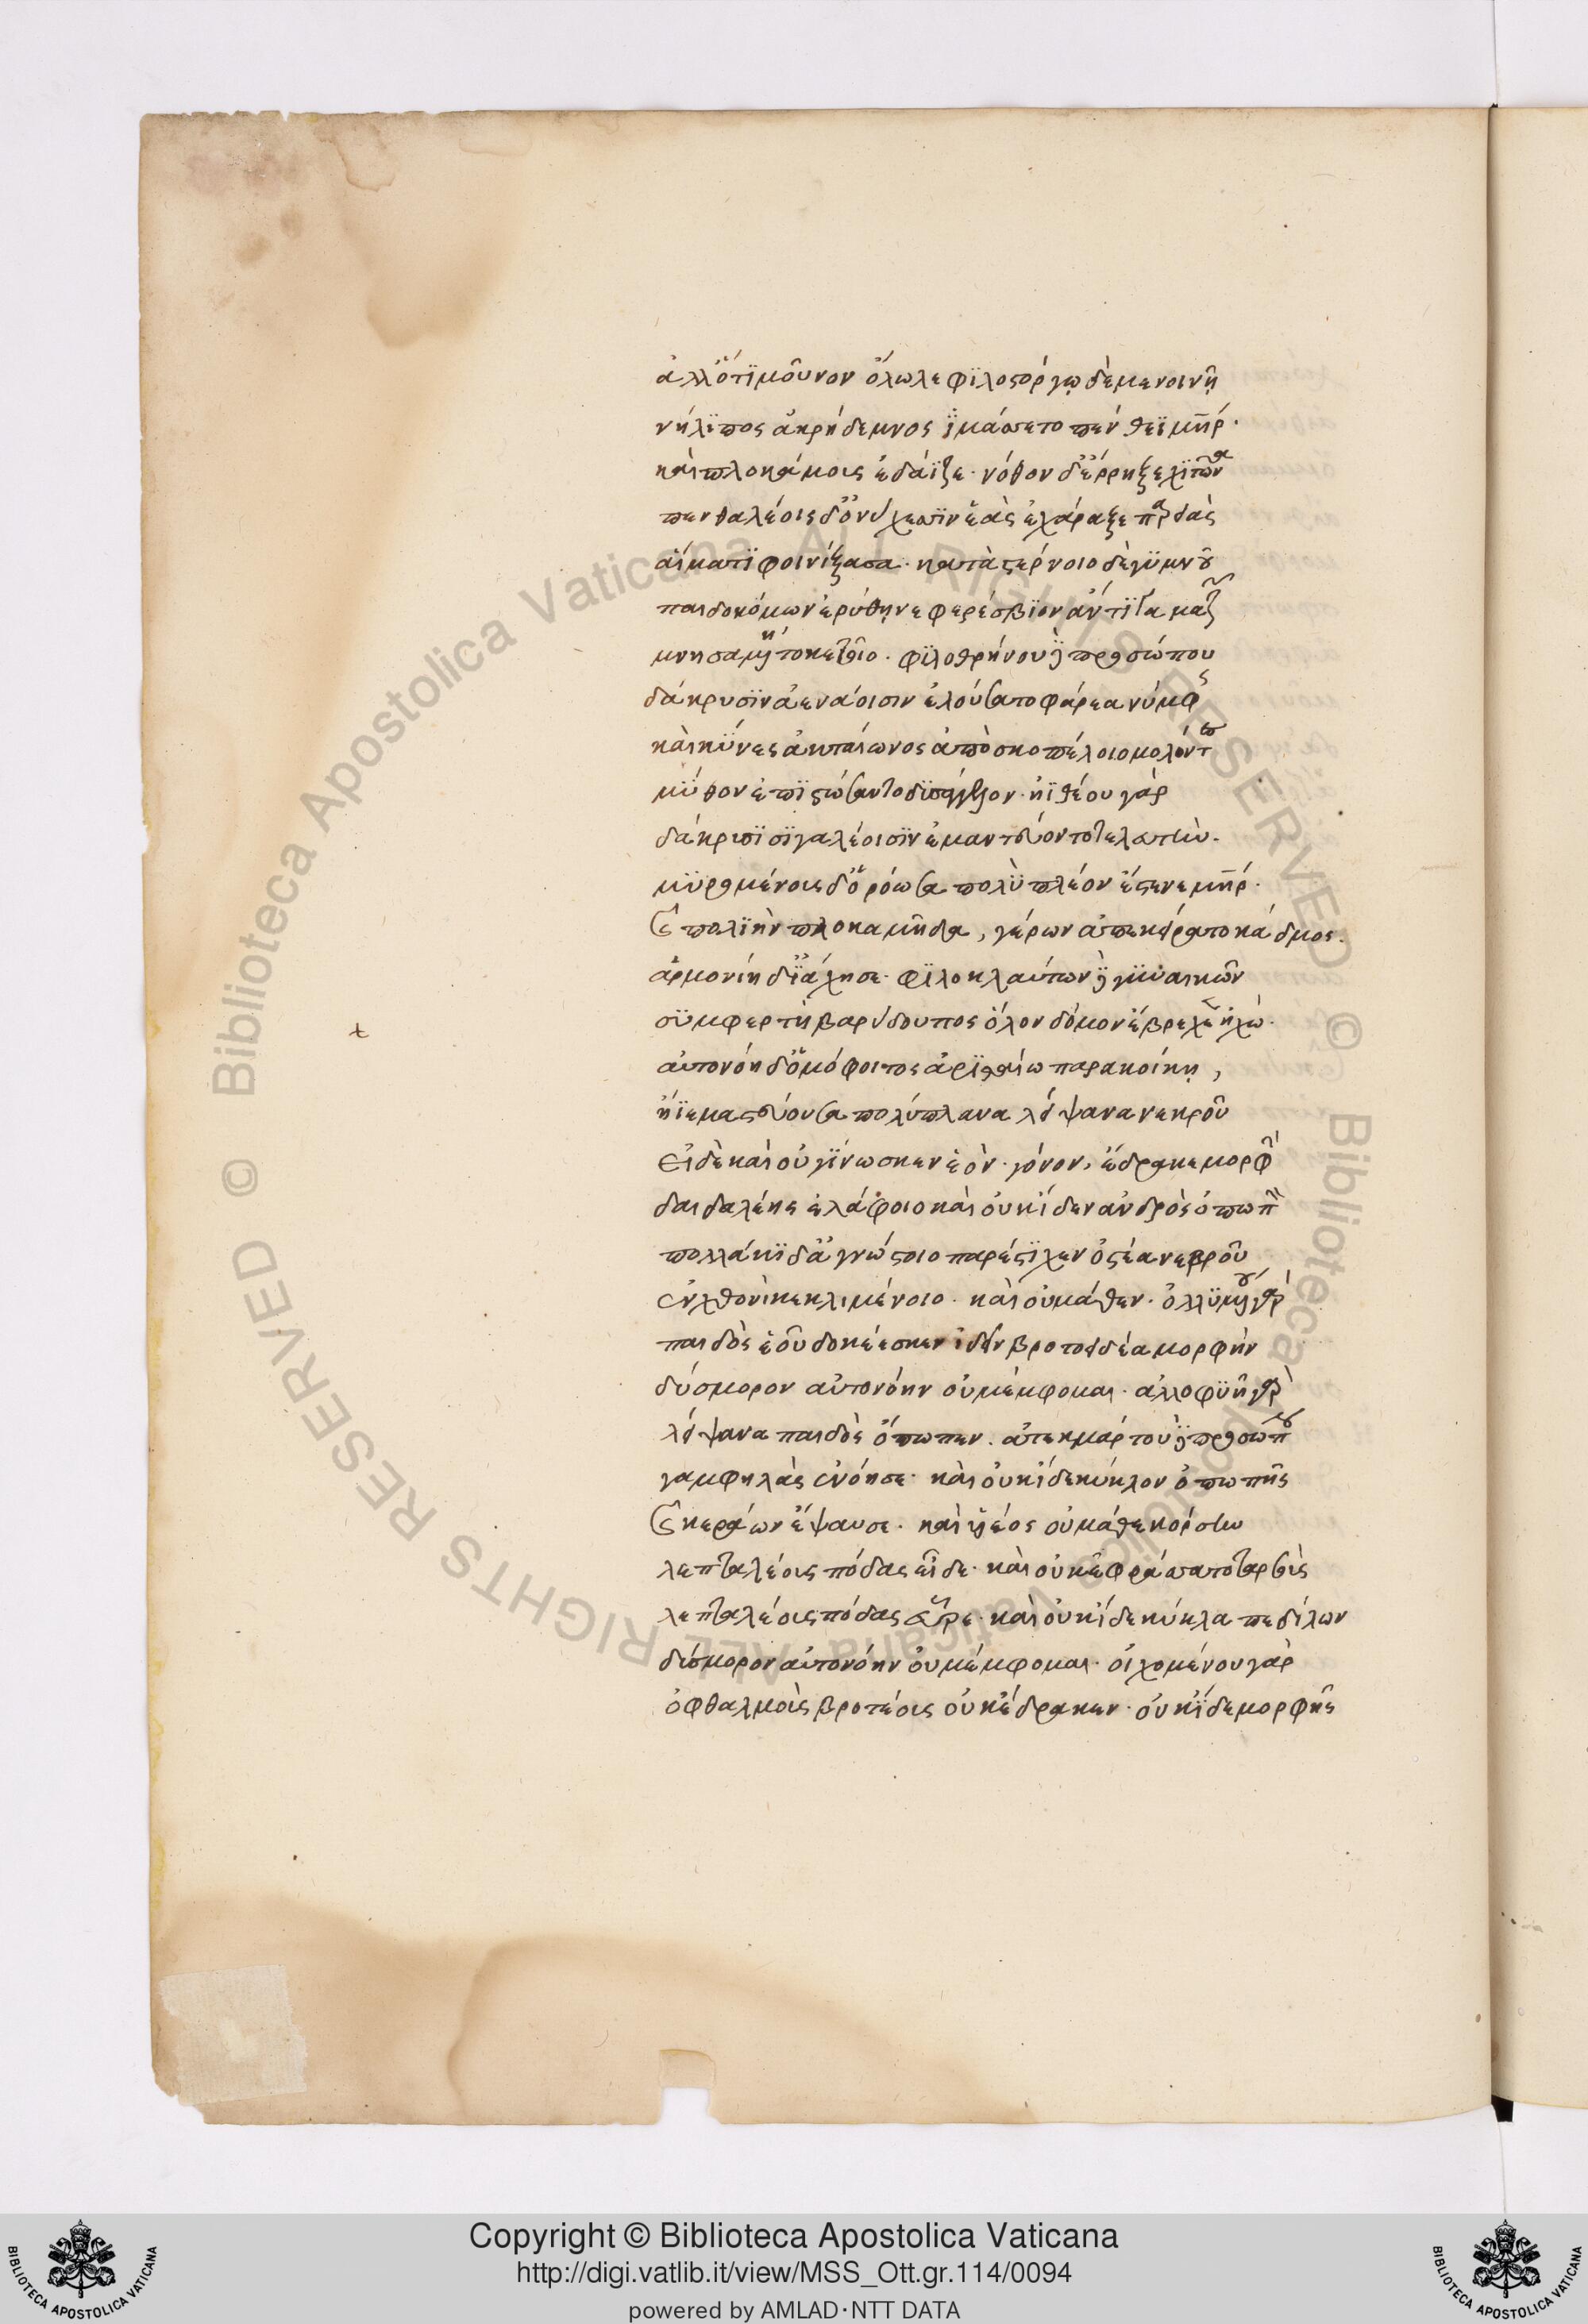 ἀλλ' ὅτϊ μοῦνον ὄλωλε φϊλοστόργῳ δὲ μενοινῇ
νήλϊπος ἀκρήδεμνος ϊμάσσετο πένθεϊ μηρ.
καὶ πλοκάμοις ἐδάϊξε. νόθον δ' ἔρρηξε χϊτῶνα
πενθαλέοις δ' ὀνύχεσσϊν ἑὰς ἐχάραξε παρειὰς
αἵματϊ φοινίξασα. κατὰ στέρνοιο δὲ γϋμνοῦ
παιδοκόμων ἐρύθηνε φερέσβϊον ἄντϊγα μαζῶν
μνησαμένη τοκετοῖο. φϊλοθρήνου δὲ προσώπου
δάκρυσϊν ἀενάοισιν ἐλούσατο φάρεα νύμφης
καὶ κϋνες ἀκταίωνος ἀπὸ σκοπέλοιο μολόντες
μϋθον ἐπϊστώσαντο δϋσάγγελον. ἠϊθέου γὰρ
δάκρισϊ σϊγαλέοισϊν ἐμαντεύοντο τελευτὴν.
μϋρομένοις δ' ὁρόωσα πολὺ πλέον ἔστενε μηρ.
καὶ πολϊὴν πλοκαμῆδα, γέρων ἀπεκείρατο κάδμος.
ἁρμονίη δ' ϊάχησε. φϊλοκλαύτων δὲ γϋναικῶν
σϋμφερτὴ βαρύδουπος ὅλον δόμον ἔβρεχεν ἠχώ.
αὐτονόη δ' ὁμόφοιτος ἀρϊσταίω παρακοίτῃ,
ἤϊε μαστεύουσα πολύπλανα λείψανα νεκροῦ
εἶδε καὶ οὐ γϊνωσκεν ἑὸν γόνον, ἔδρακε μορφὴν
δαιδαλέης ἐλάφοιο καὶ οὐκ ἴδεν ἀνδρὸς ὀπωπὴν
πολλάκϊ δ' ἀγνώστοιο παρέστϊχεν ὀστέα νεβροῦ
ἐν χθονὶ κεκλιμένοιο. καὶ οὐ μάθεν. ὀλλϋμένου γὰρ
παιδὸς ἑοῦ δοκέεσκεν ἰδεῖν βροτοειδέα μορφὴν
δύσμορον αὐτονόην οὐ μέμφομαι. ἀλλοφϋῆ γὰρ
λείψανα παιδὸς ὄπωπεν. ἀτεκμάρτου δὲ προσώπου
γαμφηλὰς ἐνόησε. καὶ οὐκ ἴδε κύκλον ὀπωπῆς
καὶ κεράων ἔψαυσε. καὶ υἱέος οὐ μάθε κόρσην
λεπταλέοις πόδας εἶδε. καὶ οὐκ ἐφράσατο ταρσὶς
λεπταλέοις πόδας εὗρε. καὶ οὐκ ἴδε κύκλα πεδίλων
δύσμορον αὐτονόην οὐ μέμφομαι. οἰχομένου γὰρ
ὀφθαλμοὶς βροτέοις οὐκ ἔδρακεν. οὐκ ἴδε μορφῆς
Copyright © Biblioteca Apostolica Vaticana
http://digi.vatlib.it/view/MSS_Ott.gr.114/0094
powered by AMLAD·NTT DATA
BIBLIOTECA APOSTOLICA VATICANA
BIBLIOTECA APOSTOLICA VATICANA
© Biblioteca Apostolica Vaticana ALL RIGHTS RESERVED
© Biblioteca Apostolica Vaticana ALL RIGHTS RESERVED